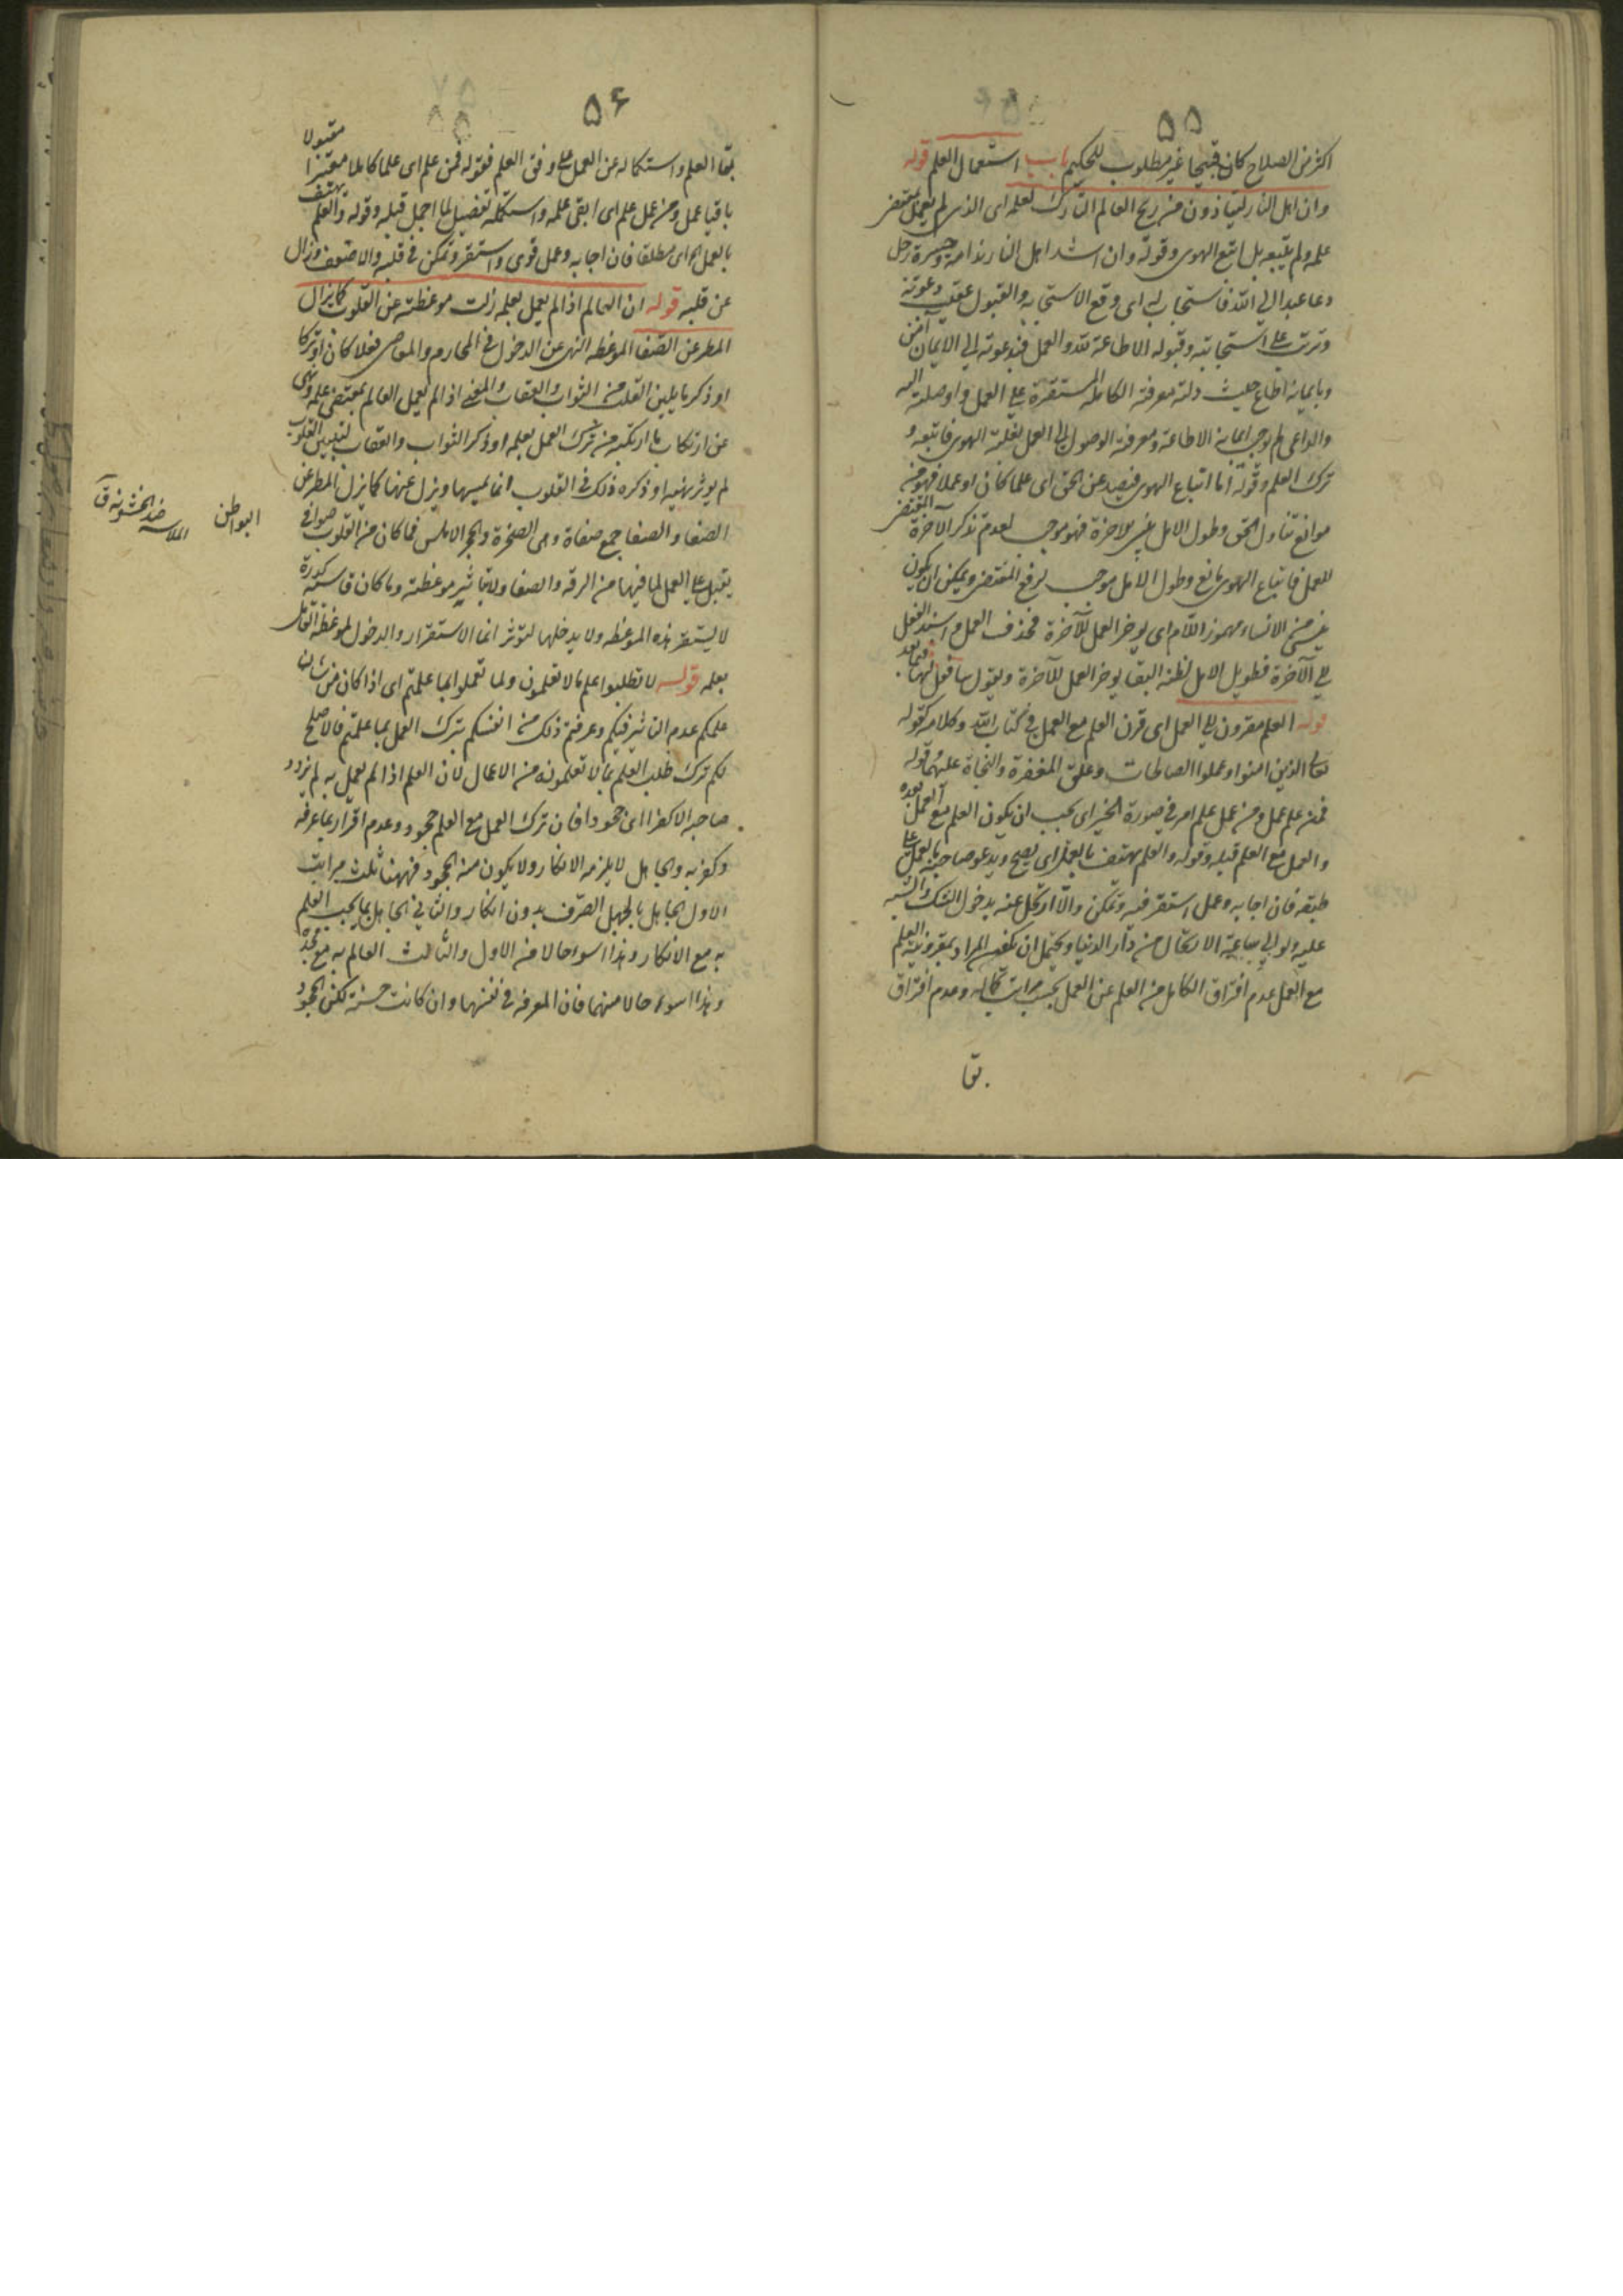 ۵۵
اكثر من الصلاح كان قبيحا غير مطلوب للحكيم باب استعمال العلم قوله
وان اهل النار ليتاذون من ريح العالم التارك لعلمه اى الذى لم يعمل بمقتضى
علمه ولم يتبعه بل اتبع الهوى وقوله وان اشد اهل النار ندامة وحسرة رجل
دعا عبدا الى الله فاستجاب له اى وقع الاستجابه والقبول عقيب دعوته
وترتب على استجابته وقبوله الاطاعة لله والعمل فبدعوته الى الايمان آمن
وبايمانه اطاع حيث دلته معرفته الكاملة المستقرة على العمل واوصلته اليه
والداعى لم يوجب ايمانه الاطاعة ومعرفته الوصول الى العمل لغلبة الهوى فاتبعه و
ترك العلم وقوله اما اتباع الهوى فيصد عن الحق اى علما كان او عملا فهو من
موانع تناول الحق وطول الامل ينسى الاخرة فهو موجب لعدم تذكر الآخرة المقتضى
للعمل فاتباع الهوى مانع وطول الامل موجب لرفع المقتضى ويمكن ان يكون
ينسى من الانساء مهموز اللام اى يوخر العمل للآخرة فحذف العمل واسند الفعل
الى الآخرة فطويل الامل لظنه البقا يوخر العمل للآخرة ويقول سافعل لها فيما بعد
قوله العلم مقرون الى العمل اى قرن العلم مع العمل فى كتاب الله وكلامه كقوله
تعالى الذين امنوا وعملوا الصالحات وعلق المغفرة والنجاة عليهما قوله
فمن علم عمل ومن عمل علم امر فى صورة الخبر اى يجب ان يكون العلم مع العمل بعده
والعمل مع العلم قبله وقوله والعلم يهتف بالعمل اى يصيح ويدعو صاحبه بالعمل على
طبقه فان اجابه وعمل استقر فيه وتمكن والا ارتحل عنه بدخول الشك والشبه
عليه ولو الى ساعة الارتحال من دار الدنيا ويحتمل ان يكون المراد بمقرونية العلم
مع العمل عدم افتراق الكامل من العلم عن العمل بحسب مراتب كماله وعدم افتراق
بقا
۵۶
بقا العلم واستكماله عن العمل على وفق العلم فقوله فمن علم اى علما كاملا معتبرا مقبولا
باقيا عمل ومن عمل علم اى ابقى علمه واستكمله تفصيل لما اجمل قبله وقوله والعلم يهتف
بالعمل اى مطلقا فان اجابه وعمل قوى واستقر وتمكن فى قلبه والا ضعف وزال
عن قلبه قوله ان العالم اذا لم يعمل بعلمه زلت موعظته عن القلوب كما يزل
المطر عن الصفا الموعظه النهى عن الدخول فى المحارم والمعاصى فعلا كان او تركا
او ذكر ما يلين القلب من الثواب والعقاب والمعنى اذا لم يعمل العالم بمقتضى علمه ونهى
عن ارتكاب ما ارتكبه من ترك العمل بعلمه او ذكر الثواب والعقاب لتليين القلوب
لم يوثر نهيه او ذكره ذلك فى القلوب انما يمسها ويزل عنها كما يزل المطر عن
الصفا والصفا جمع صفاة وهى الصخرة والحجر الاملس فما كان من القلوب صوافى
البواطن
الملاسة ضد الخشونة ق
يقبل على العمل لما فيها من الرقة والصفا ولا بتاثير موعظته وما كان قاسية كدرة
لا يستقر هذه الموعظه ولا يدخلها لتوثر انما الاستقرار والدخول لموعظة القائل
بعلمه قوله لا تطلبوا علم ما لا تعلمون ولما تعملوا بما علمتم اى اذا كان من شان
علمكم عدم التاثير فيكم وعرفتم ذلك من انفسكم بترك العمل بما علمتم فالاصلح
لكم ترك طلب العلم بما لا تعلمونه من الاعمال لان العلم اذا لم يعمل به لم يزدد
صاحبه الا كفرا اى جحودا فان ترك العمل مع العلم جحود وعدم اقرار بما عرفه
وكفر به والجاهل لا يلزمه الانكار ولا يكون منه الجحود فههنا ثلث مراتب
الاول الجاهل بالجهل الصرف بدون انكار والثانى الجاهل بما يجب العلم
به مع الانكار وهذا اسوء حالا من الاول والثالث العالم به مع جحده
وهذا اسوء حالا منهما فان المعرفه فى نفسها وان كانت حسنة لكن الجحود